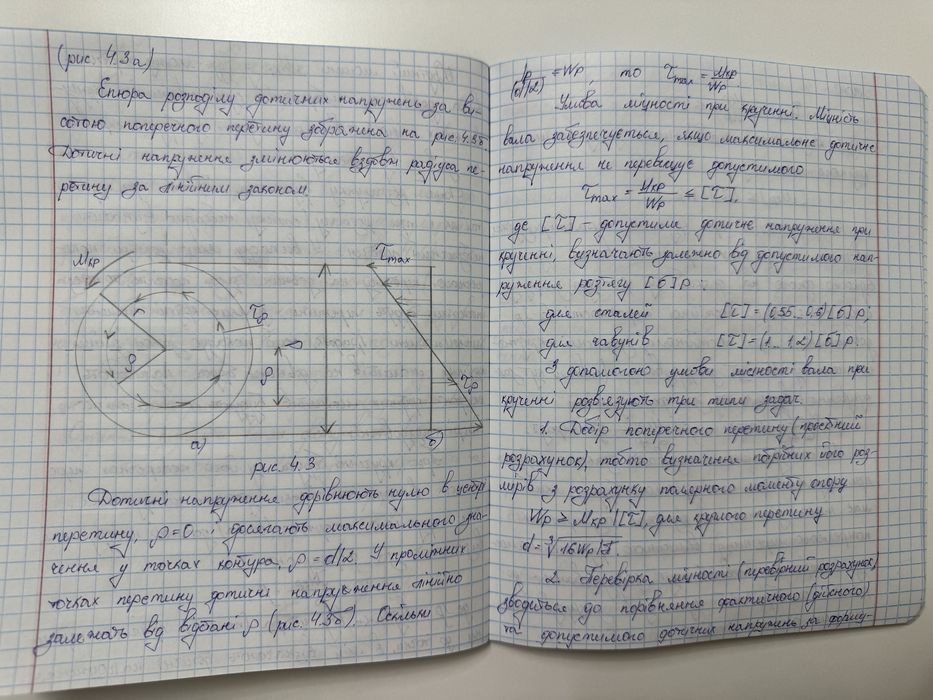 (рис. 4.3а)
Епюра розподілу дотичних напружень за ви-
сотою поперечного перетину зображена на рис. 4.3б
Дотичні напруження змінюються вздовж радіуса пе-
ретину за лінійним законом
Mкр
r
ρ
τρ
ρ
D
τmax
τρ
а)
б)
рис. 4.3
Дотичні напруження дорівнюють нулю в центрі
перетину, ρ=0 і досягають максимального зна-
чення у точках контура, ρ = d/2. У проміжних
точках перетину дотичні напруження лінійно
залежать від відстані ρ (рис. 4.3б). Оскільки
Ip/(d/2) = Wp, то τmax = Mкр/Wp.
Умова міцності при крученні. Міцність
вала забезпечується, якщо максимальне дотичне
напруження не перевищує допустимого
τmax = Mкр/Wp ≤ [τ],
де [τ] - допустиме дотичне напруження при
крученні, визначають залежно від допустимого нап-
руження розтягу [б]р:
для сталей [τ]=(0,55...0,6)[б]р;
для чавунів [τ]=(1...1,2)[б]р.
З допомогою умови міцності вала при
крученні розв'язують три типи задач.
1. Добір поперечного перетину (проєктний
розрахунок), тобто визначення потрібних його роз-
мірів з розрахунку полярного моменту опору
Wp ≥ Mкр/[τ], для круглого перетину
d = ∛16Wp/π.
2. Перевірка міцності (перевірний розрахунок)
зводиться до порівняння фактичного (дійсного)
та допустимого дотичних напружень за форму-